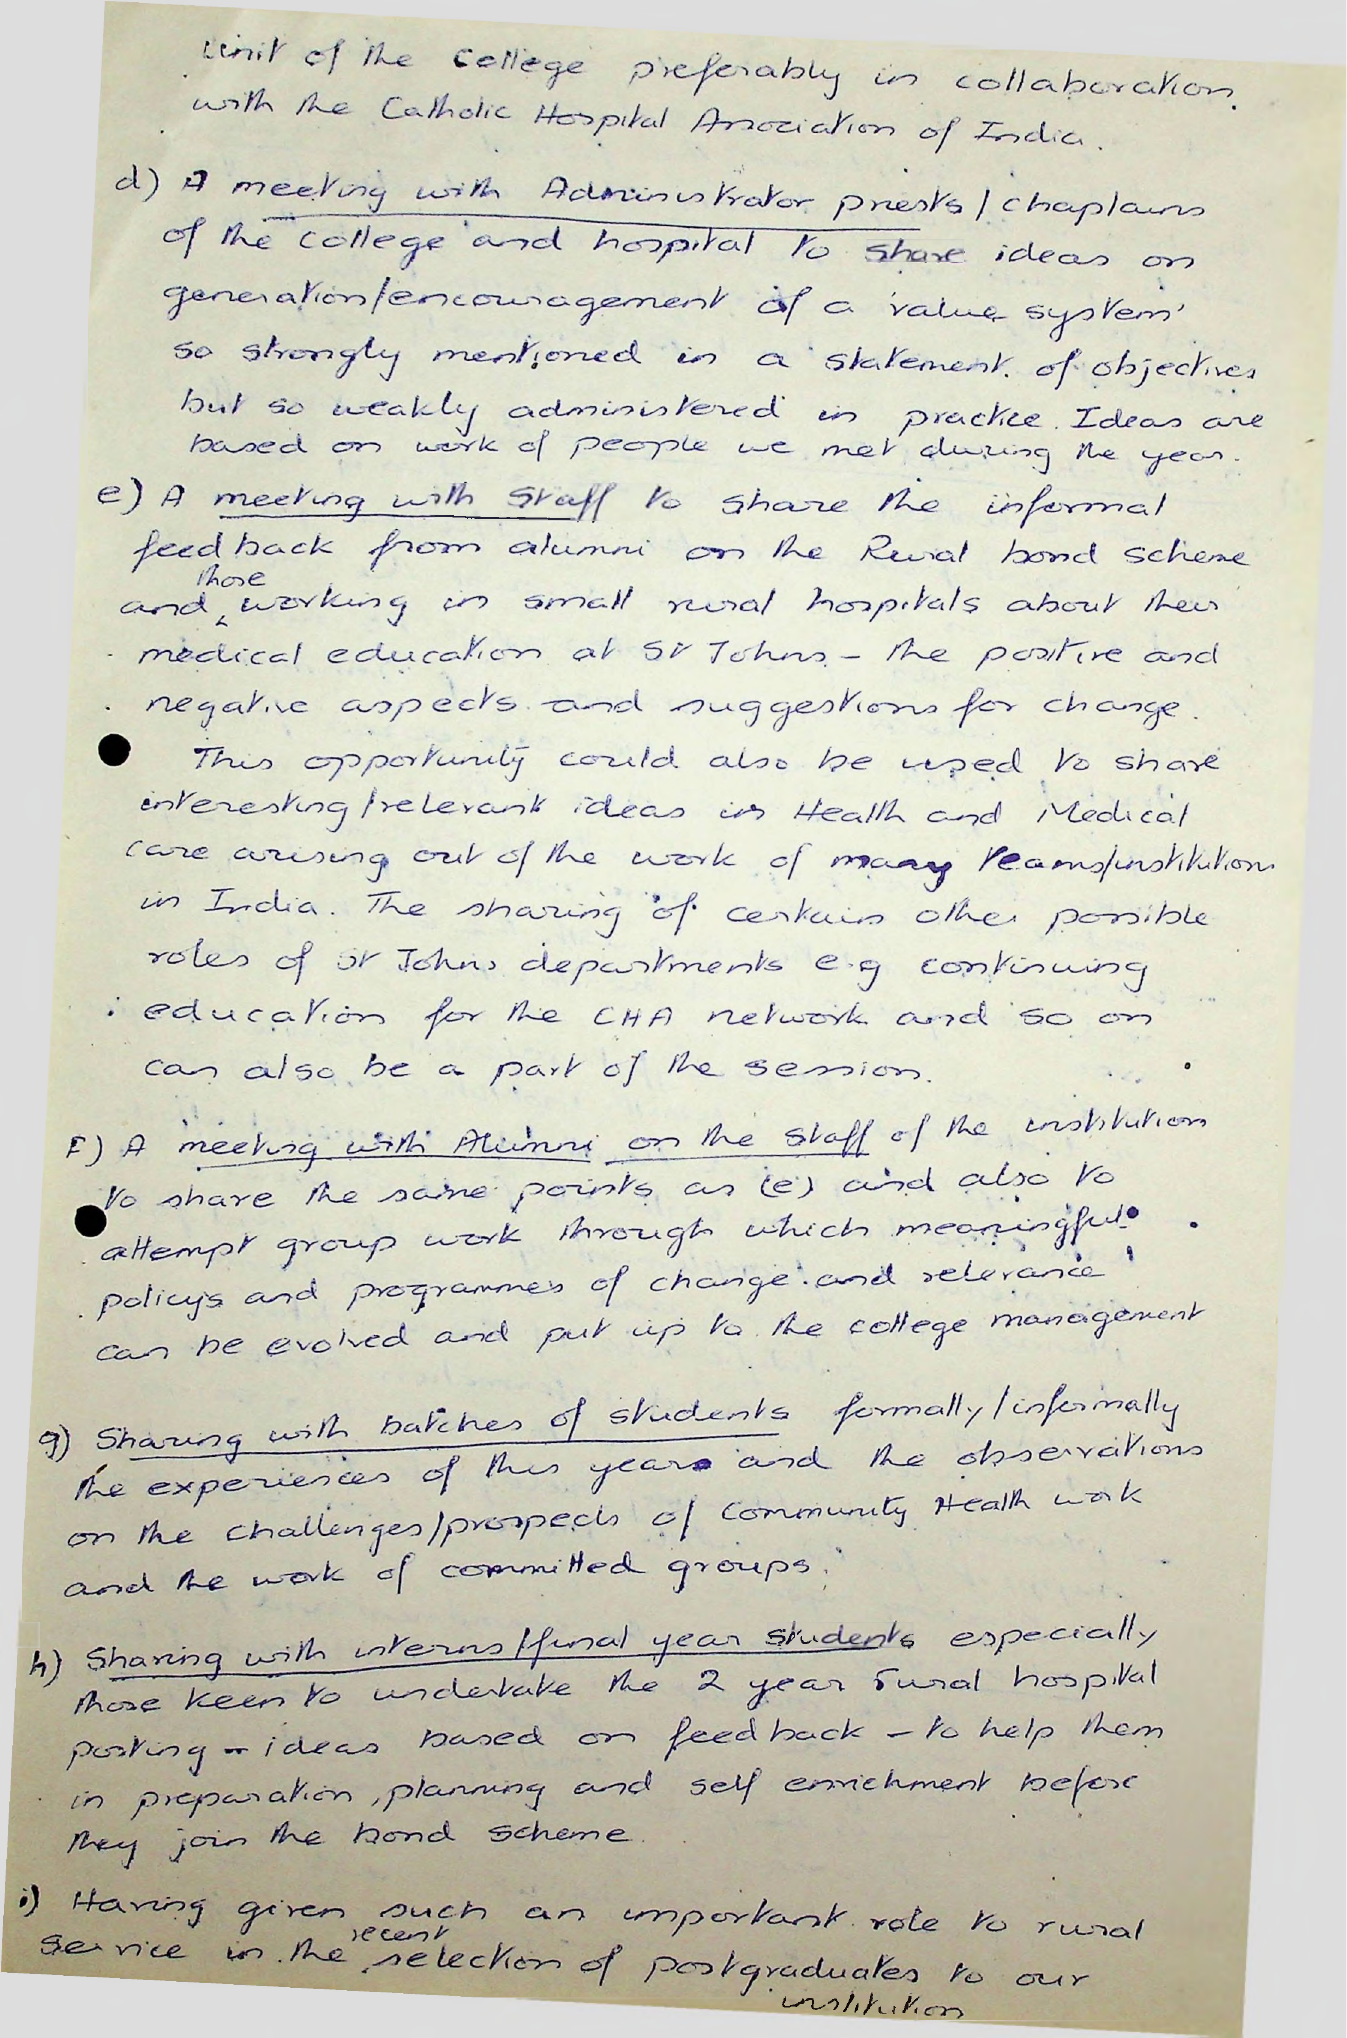 unit of the College preferably in collaboration
with the Catholic Hospital Association of India.
d) A meeting with Administrator priests/chaplains
of the College and hospital to share ideas on
generation/encouragement of a 'value system'
so strongly mentioned in a statement of objectives
but so weakly administered in practice. Ideas are
based on work of people we met during the year.
e) A meeting with Staff to share the informal
feedback from alumni on the Rural bond scheme
those
and working in small rural hospitals about their
medical education at St Johns - the positive and
negative aspects and suggestions for change.
This opportunity could also be used to share
interesting/relevant ideas in Health and Medical
care arising out of the work of many teams/institutions
in India. The sharing of certain other possible
roles of St Johns departments e.g continuing
education for the CHA network and so on
can also be a part of the session.
F) A meeting with Alumni on the Staff of the institution
to share the same points as (e) and also to
attempt group work through which meaningful
policys and programmes of change and relevance
can be evolved and put up to the college management
g) Sharing with batches of students formally/informally
the experiences of this year and the observations
on the challenges/prospects of Community Health work
and the work of committed groups.
h) Sharing with interns/final year students especially
those keen to undertake the 2 year rural hospital
posting - ideas based on feedback - to help them
in preparation, planning and self enrichment before
they join the bond scheme.
i) Having given such an important role to rural
recent
service in the selection of postgraduates to our
institution